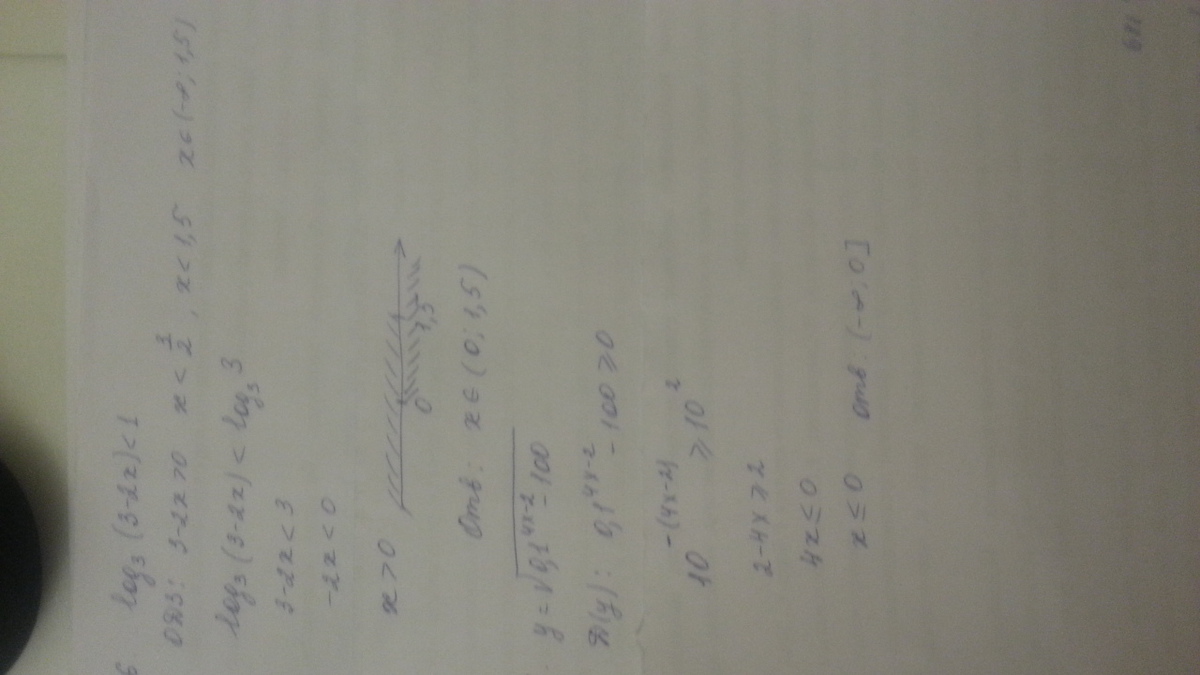 6. log₃(3-2x)<1
ОДЗ: 3-2x>0 x<3/2, x<1,5 x∈(-∞; 1,5)
log₃(3-2x) < log₃ 3
3-2x<3
-2x<0
x>0
0 1,5
Отв: x∈(0; 1,5)
y=√(0,1^(4x-2) - 100)
D(y): 0,1^(4x-2) - 100 ≥ 0
10^(-(4x-2)) ≥ 10²
2-4x ≥ 2
4x ≤ 0
x ≤ 0 Отв: (-∞, 0]